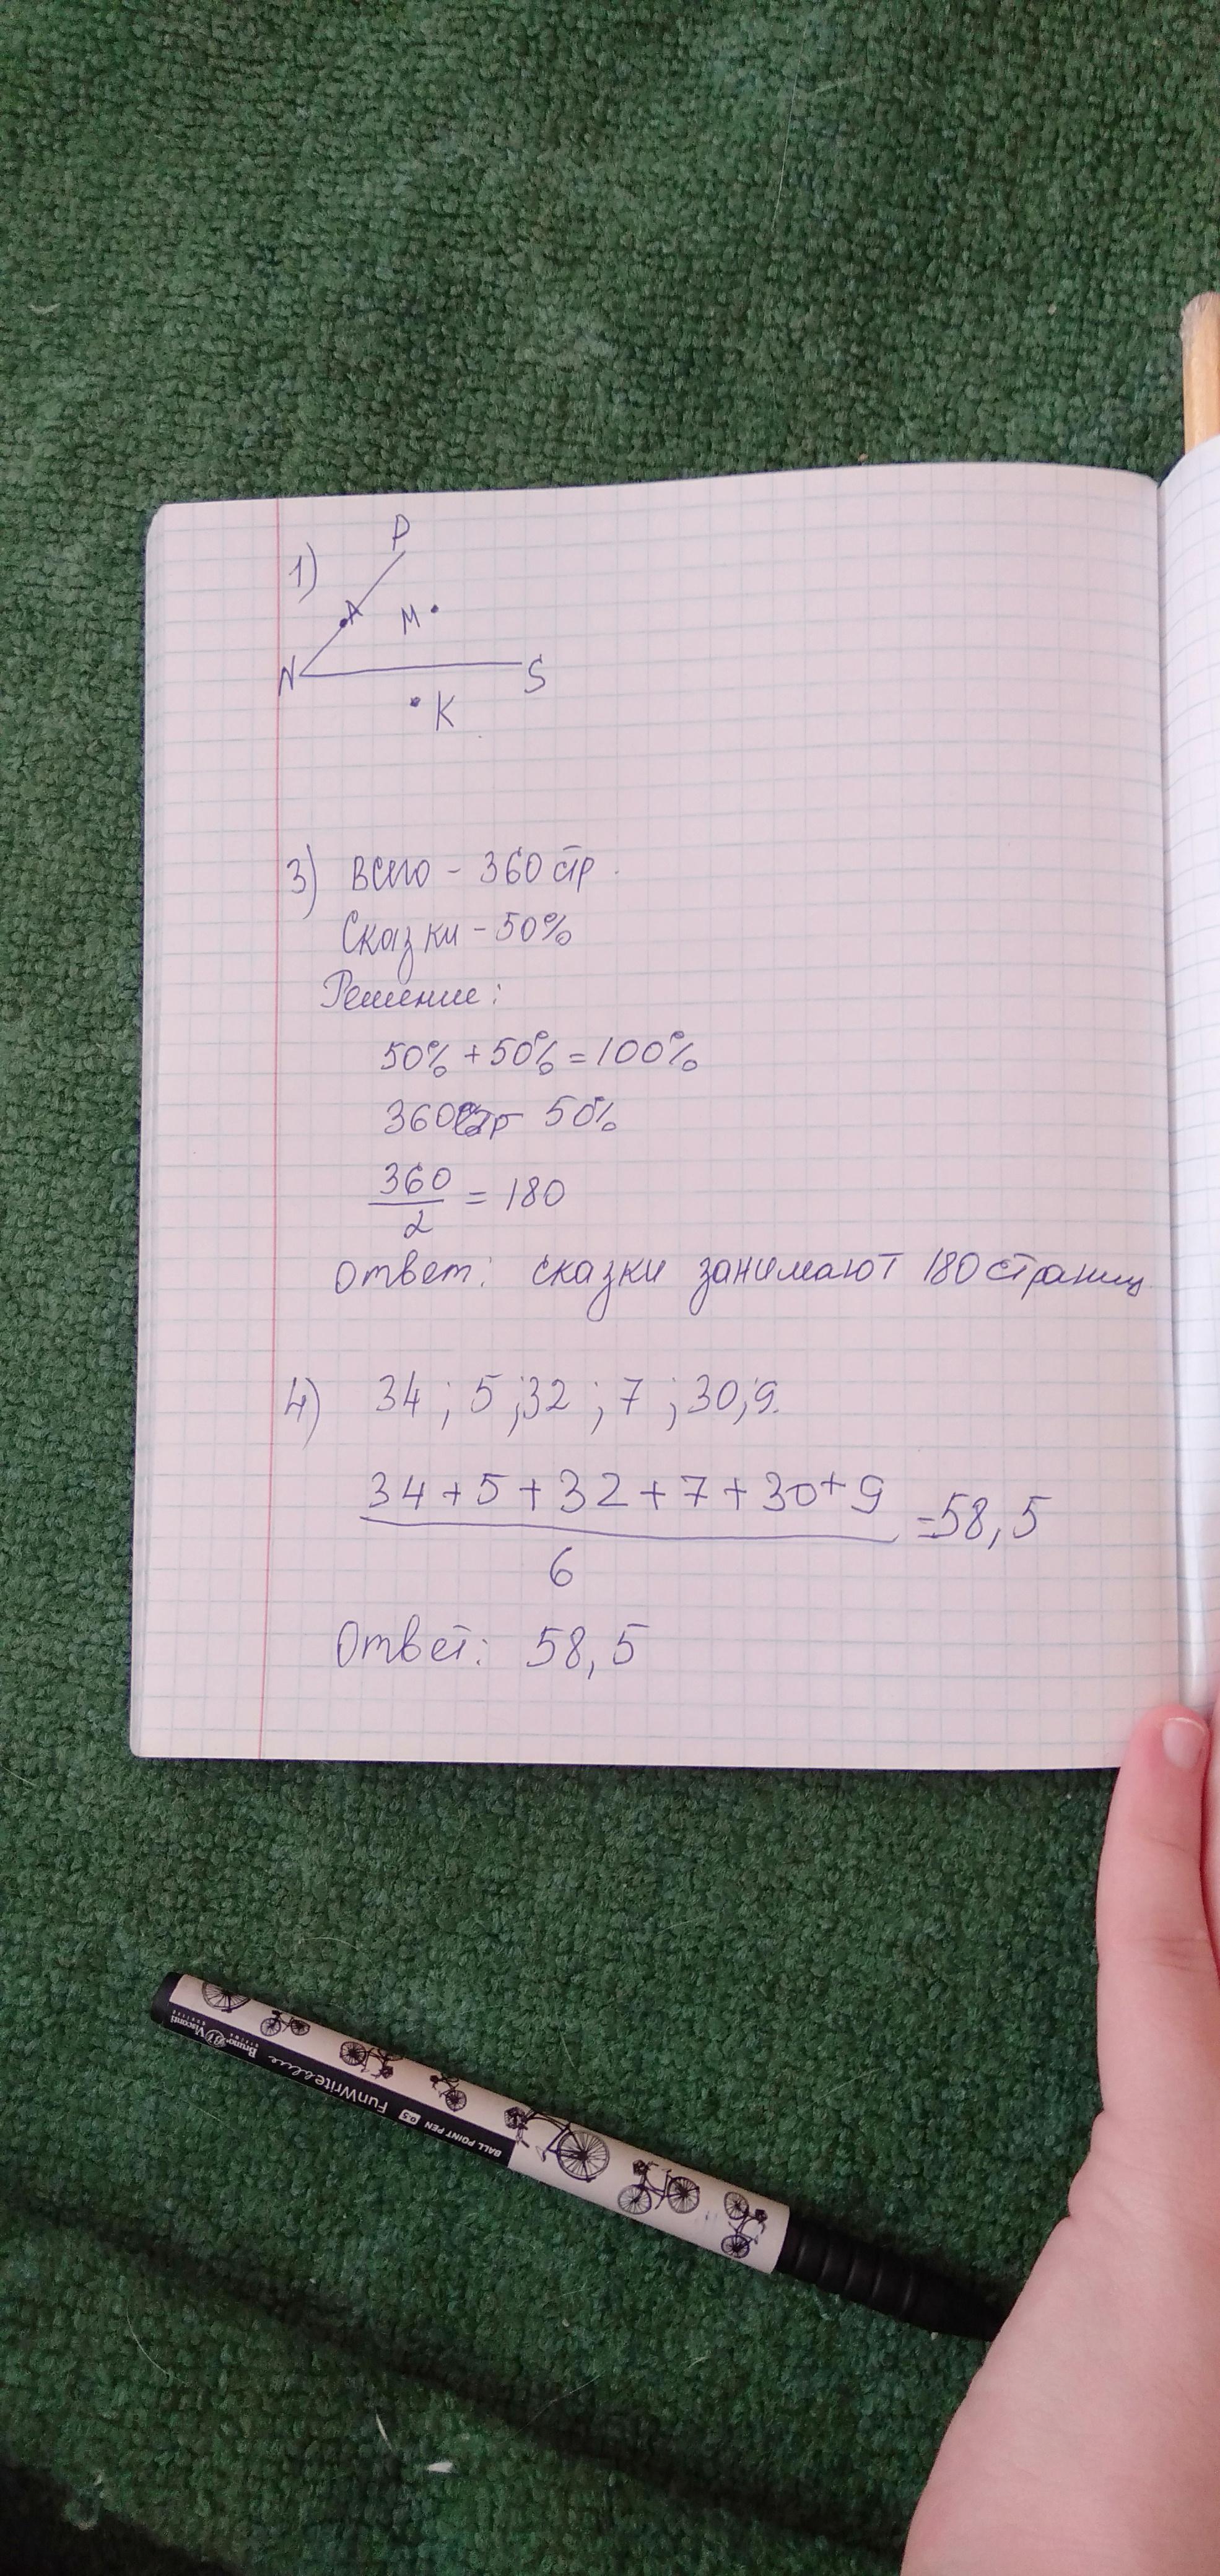 1)
P
A
M
N
S
K
3) всего - 360 стр.
Сказки - 50%
Решение:
50% + 50% = 100%
360 стр - 50%
360
2
= 180
Ответ: сказки занимают 180 страниц
4) 34; 5; 32; 7; 30; 9.
34 + 5 + 32 + 7 + 30 + 9
6
= 58,5
Ответ: 58,5
Bruno Visconti
FunWrite blue
BALL POINT PEN 0.5